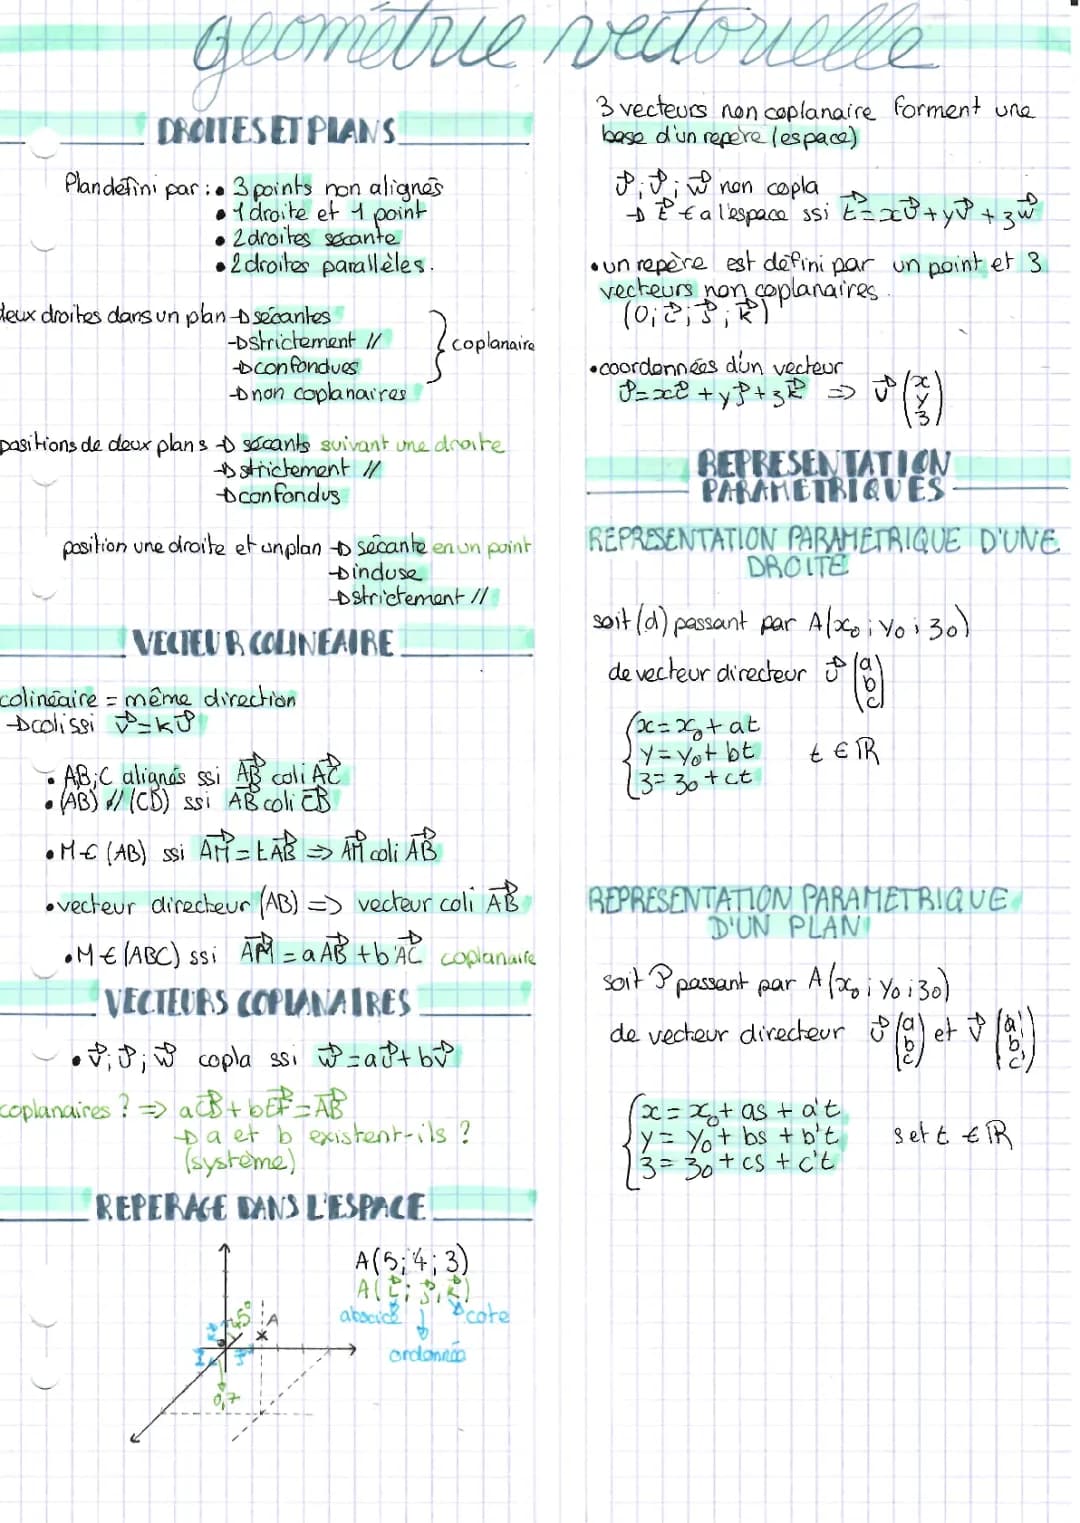 géométrie vectorielle
DROITES ET PLANS
Plan défini par : • 3 points non alignés
• 1 droite et 1 point
• 2 droites sécante
• 2 droites parallèles.
deux droites dans un plan → sécantes
→ strictement //
→ confondues
} coplanaire
→ non coplanaires
positions de deux plans → sécants suivant une droite
→ strictement //
→ confondus
position une droite et un plan → sécante en un point
→ induse
→ strictement //
VECTEUR COLINEAIRE
colinéaire = même direction
→ coli ssi v⃗ = k u⃗
• A,B;C alignés ssi AB⃗ coli AC⃗
• (AB) // (CD) ssi AB⃗ coli CD⃗
• M ∈ (AB) ssi AM⃗ = t AB⃗ ⇒ AM⃗ coli AB⃗
• vecteur directeur (AB) ⇒ vecteur coli AB⃗
• M ∈ (ABC) ssi AM⃗ = a AB⃗ + b AC⃗ coplanaire
VECTEURS COPLANAIRES
• v⃗; u⃗; w⃗ copla ssi w⃗ = a u⃗ + b v⃗
coplanaires ? ⇒ a CB⃗ + b EF⃗ = AB⃗
→ a et b existent-ils ?
(système)
REPERAGE DANS L'ESPACE
A(5; 4; 3)
A(i⃗; j⃗; k⃗)
abscice
cote
ordonnée
45°
A
0,7
3 vecteurs non coplanaire forment une
base d'un repère (espace)
u⃗; v⃗; w⃗ non copla
→ t⃗ ∈ a l'espace ssi t⃗ = x u⃗ + y v⃗ + z w⃗
• un repère est défini par un point et 3
vecteurs non coplanaires.
(O; i⃗; j⃗; k⃗)
• coordonnées d'un vecteur
v⃗ = x i⃗ + y j⃗ + z k⃗ ⇒ v⃗ (x
y
z)
REPRESENTATION
PARAMETRIQUES
REPRESENTATION PARAMETRIQUE D'UNE
DROITE
soit (d) passant par A(x₀; y₀; z₀)
de vecteur directeur u⃗ (a
b
c)
x = x₀ + at
y = y₀ + bt t ∈ ℝ
z = z₀ + ct
REPRESENTATION PARAMETRIQUE
D'UN PLAN
soit P passant par A(x₀; y₀; z₀)
de vecteur directeur u⃗ (a b c) et v⃗ (a' b' c')
x = x₀ + as + a't
y = y₀ + bs + b't s et t ∈ ℝ
z = z₀ + cs + c't